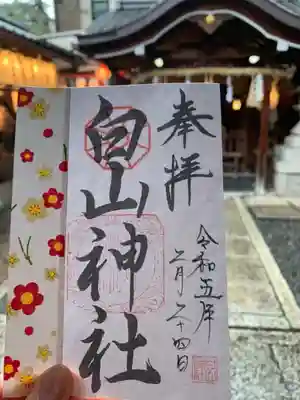 奉拝
白山神社
令和五年
二月二十四日